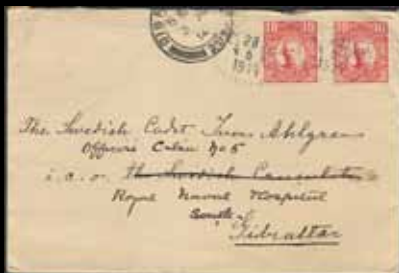 10 10
28
1914
The Swedish Cadet Ivan Ahlgren
Officers Cabin No 5
i.c.o. the Swedish Consulate
Royal Naval Hospital
South of
Gibraltar